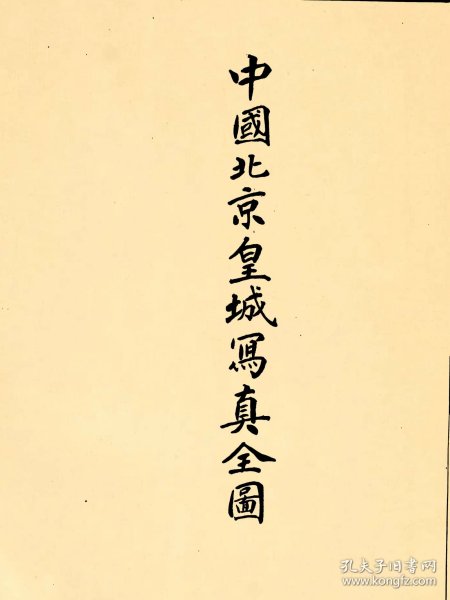 中國北京皇城冩真全圖
孔夫子旧书网
www.kongfz.com